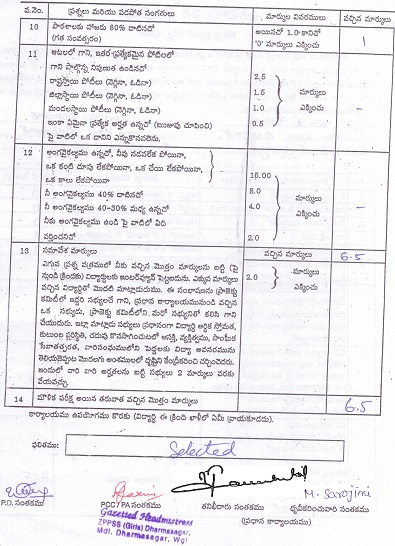 వ.నెం. ప్రశ్నలు మరియు పడపోత సంగతులు మార్కుల వివరములు వచ్చిన మార్కులు
10 పాఠశాలకు హాజరు 80% దాటినచో అయినచో 1.0 కానిచో 1
(గత సంవత్సరం) '0' మార్కులు ఎక్కించు
11 ఆటలలో గాని, ఇతర ప్రత్యేకమైన పోటీలలో
గాని పాల్గొన్న నిపుణుత ఉండినచో
రాష్ట్రస్థాయి పోటీలు (నెగ్గినా, ఓడినా) 2.5
జిల్లాస్థాయి పోటీలు (నెగ్గినా, ఓడినా) 1.5 మార్కులు
మండలస్థాయి పోటీలు (నెగ్గినా, ఓడినా) 1.0 ఎక్కించు -
ఇంకా ఏమైనా ప్రత్యేక అర్హత ఉన్నచో (ఋజువు చూపించి) 0.5
పై వాటిలో ఒక దానిని ఎన్నుకొనవలెను.
12 అంగవైకల్యము ఉన్నచో, నీవు నడవలేక పోయినా,
ఒక కంటి చూపు లేకపోయినా, ఒక చేయి లేకపోయినా,
ఒక కాలు లేకపోయినా 15.00
నీ అంగవైకల్యము 40% దాటినచో 8.0 మార్కులు
నీ అంగవైకల్యము 40-30% మధ్య ఉన్నచో 4.0 ఎక్కించు -
నీకు అంగవైకల్యము ఉండి పై వాటిలో ఏది
వర్తించనిచో 2.0
13 సమావేశ మార్కులు వచ్చిన మార్కులు 6.5
ఎగువ ప్రశ్న పత్రములో నీకు వచ్చిన మొత్తం మార్కులను బట్టి (పై
నుండి క్రిందకు) విద్యార్థులకు ఇంటర్వ్యూకి పెట్టబడును. ఎక్కువ మార్కులు 2.0 మార్కులు
వచ్చిన విద్యార్థితో మొదటి మాట్లాడుదుము. ఈ సంభాషణను ప్రాజెక్టు ఎక్కించు
కమిటీలో ఇద్దరి సభ్యులచే గాని, ప్రధాన కార్యాలయమునుండి వచ్చిన
ఒక సభ్యుడు, ప్రాజెక్టు కమిటీలోని మరో సభ్యునితో కలిసి గాని
చేయుదురు. ఇట్లా మాట్లాడు సభ్యులు ప్రధానంగా విద్యార్థి ఆర్థిక స్తోమత,
కుటుంబ పరిస్థితి, చదువు కొనసాగించుటలో ఆసక్తి, వ్యక్తిత్వము, సాంఘిక
సేవాతత్పరత, వారిసంఘములోని పెద్దలకు విద్యా అవసరమును
తెలియజెప్పుట మొదలగు అంశములలో దృష్టిని కేంద్రీకరించి చర్చించెదరు.
ఇందులో వారి వారి అర్హతలను బట్టి సభ్యులు 2 మార్కులు వరకు
వేయవచ్చు.
14 మౌఖిక పరీక్ష అయిన తరువాత వచ్చిన మొత్తం మార్కులు 6.5
కార్యాలయము ఉపయోగము కొరకు (విద్యార్థి ఈ క్రింది ఖాళీలో ఏమీ వ్రాయకూడదు).
ఫలితము: Selected
M. Sarojini
P.D. సంతకము PCC/PA సంతకము తనిఖీదారు సంతకము ధృవీకరించువారి సంతకము
(ప్రధాన కార్యాలయము)
Gazetted Headmistress
ZPPSS (Girls) Dharmasagar,
Mdl. Dharmasagar, Wgl